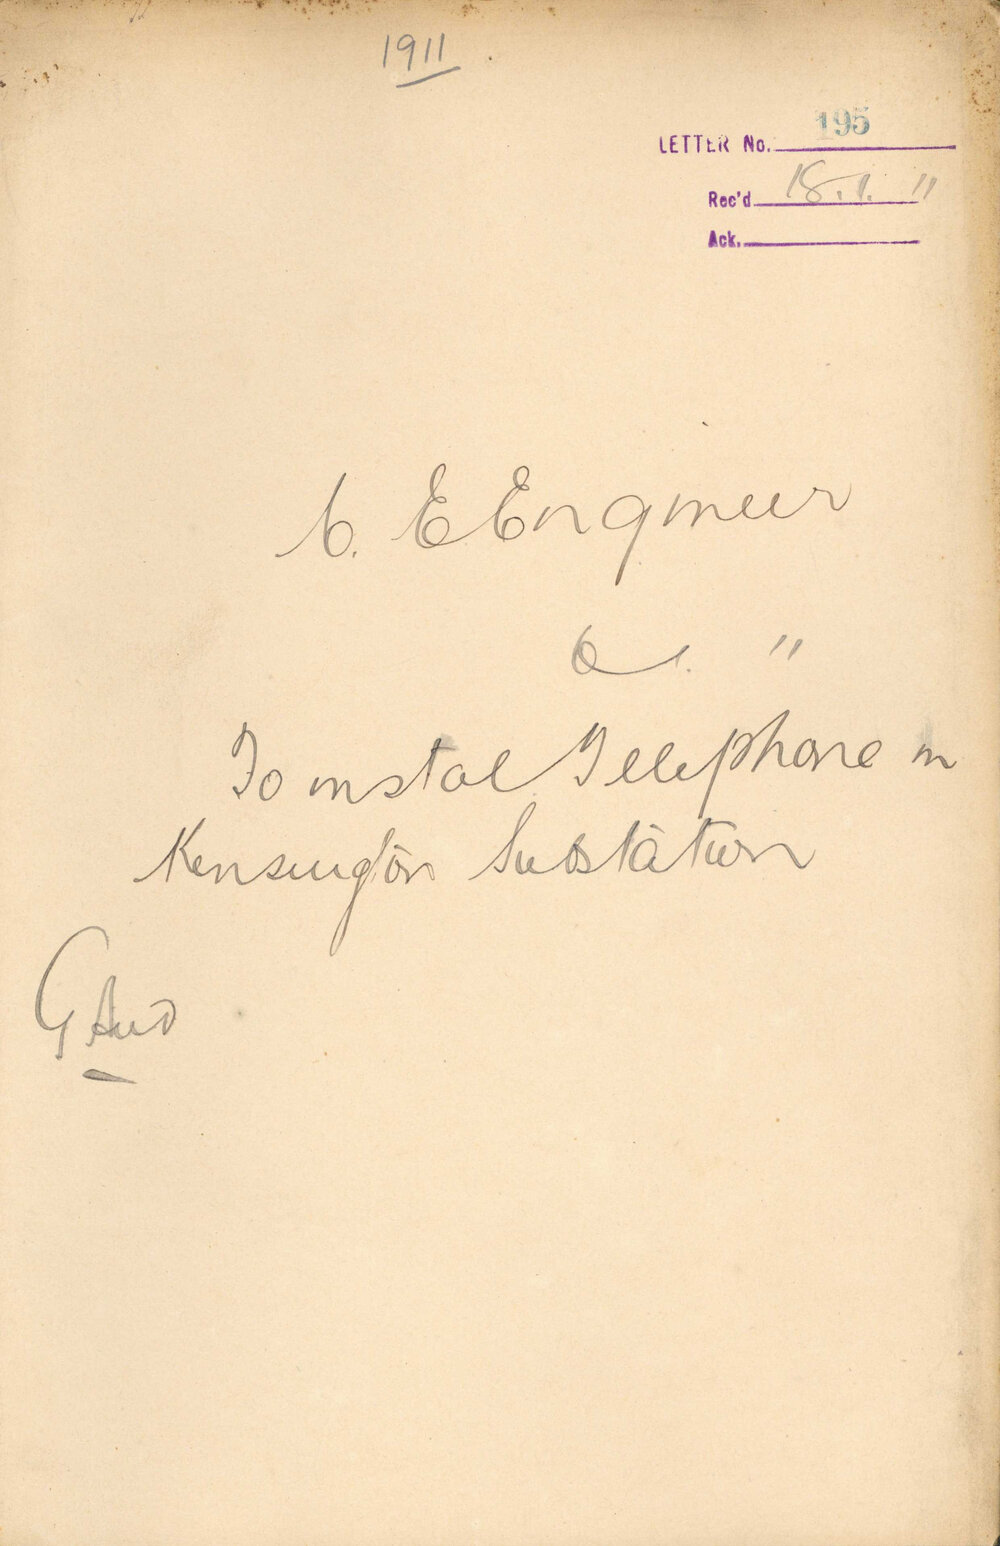 1911
LETTER No. 195
Rec'd 18.1. 11
Ack.
C. E Engineer
"
To instal Telephone in
Kensington Substation